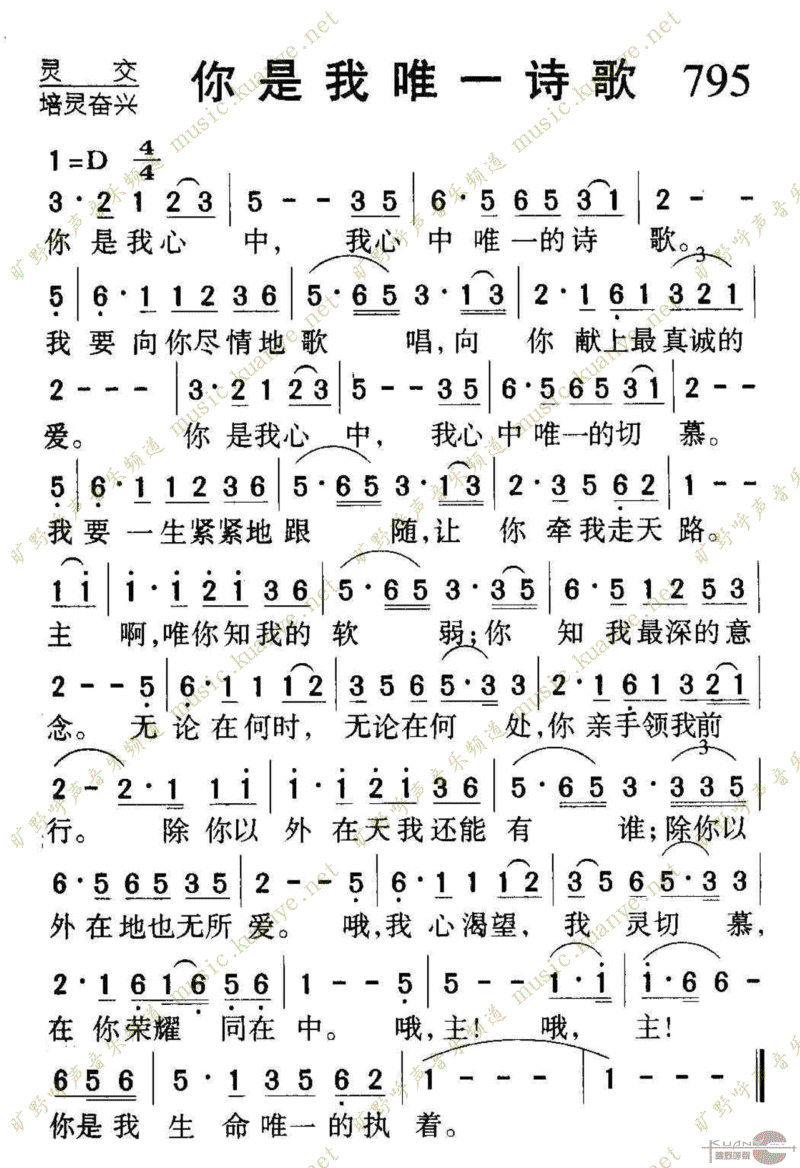 灵 交
培灵奋兴
你是我唯一诗歌 795
1=D 4/4
3·2 1 2 3 | 5 - - 3 5 | 6·5 6 5 3 1 | 2 - -
你是我心 中， 我心中唯一的诗 歌。
5 | 6·1 1 2 3 6 | 5·6 5 3·1 3 | 2·1 6 1 3 2 1 |
我 要 向你尽情地 歌 唱,向 你 献上最真诚的
2 - - - | 3·2 1 2 3 | 5 - - 3 5 | 6·5 6 5 3 1 | 2 - -
爱。 你 是我心 中， 我心中唯一的切 慕。
5 | 6·1 1 2 3 6 | 5·6 5 3·1 3 | 2·3 5 6 2 | 1 - -
我 要 一生紧紧地 跟 随,让 你 牵我走天 路。
1 i | i·i 2 i 3 6 | 5·6 5 3·3 5 | 6·5 1 2 5 3 |
主 啊,唯你知我的 软 弱;你 知 我最深的意
2 - - 5 | 6·1 1 1 2 | 3 5 6 5·3 3 | 2·1 6 1 3 2 1 |
念。 无 论在何时， 无论在何 处,你 亲手领我前
2 - 2·1 1 i | i·i 2 i 3 6 | 5·6 5 3·3 3 5 |
行。 除 你以 外在天我还能 有 谁;除你以
6·5 6 5 3 5 | 2 - - 5 | 6·1 1 1 2 | 3 5 6 5·3 3 |
外在地也无所 爱。 哦,我 心渴望， 我 灵切 慕，
2·1 6 1 6 5 6 | 1 - - 5 | 5 - - i·i | i·6 6 -
在 你荣耀 同在 中。 哦,主！ 哦， 主！
6 5 6 | 5·1 3 5 6 2 | 1 - - - | 1 - - -
你是我 生 命唯一的执 着。
旷野呼声音乐频道 music.kuanye.net
KUANYE
旷野呼声